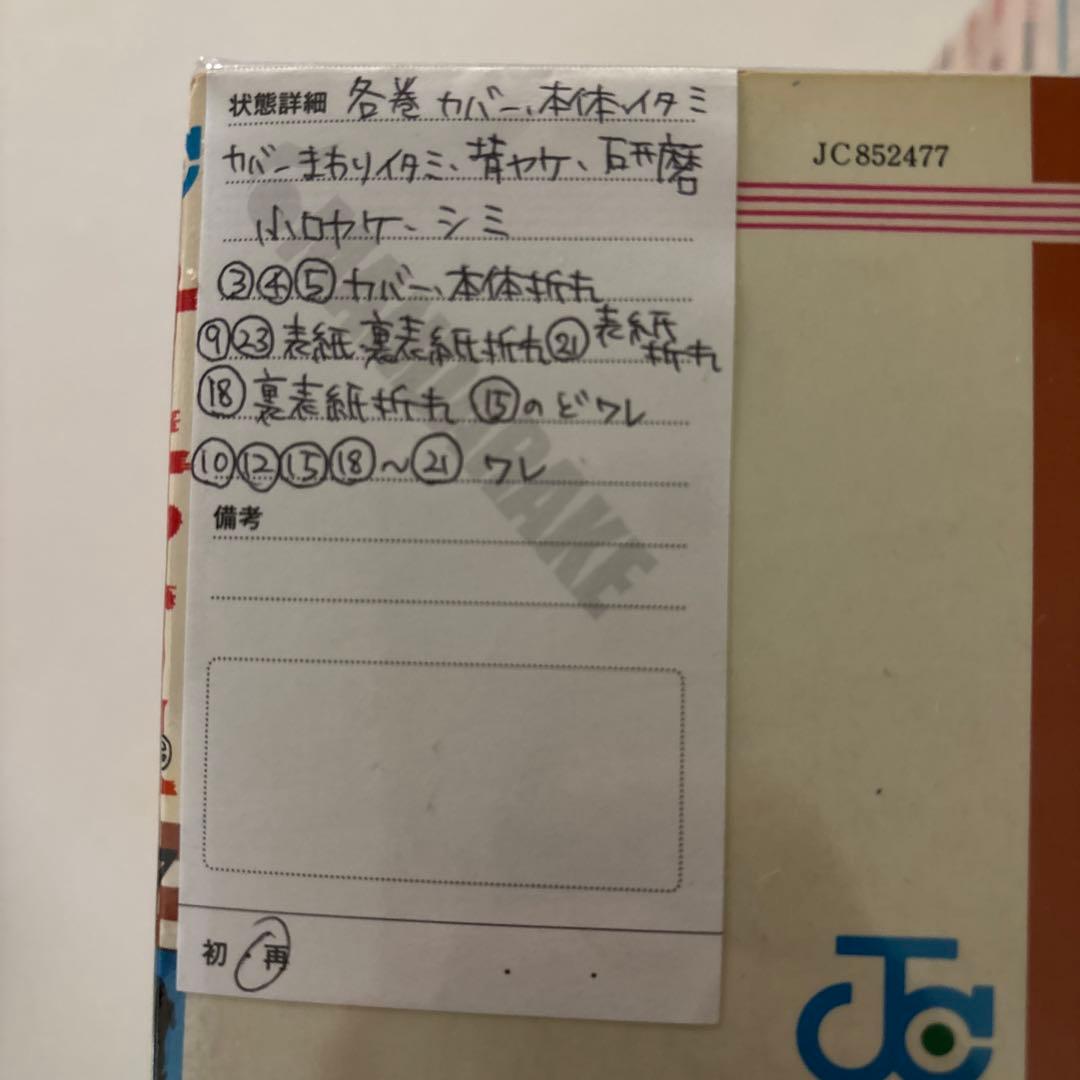 状態詳細 各巻 カバー、本体イタミ
カバーまわりイタミ、背ヤケ、研磨
小口ヤケ、シミ
③④⑤カバー、本体折れ
⑨㉓表紙 裏表紙折れ㉑表紙折れ
⑱裏表紙折れ ⑮のどワレ
⑩⑫⑮⑱〜㉑ ワレ
備考
初・再
MANDARAKE
JC852477
JC